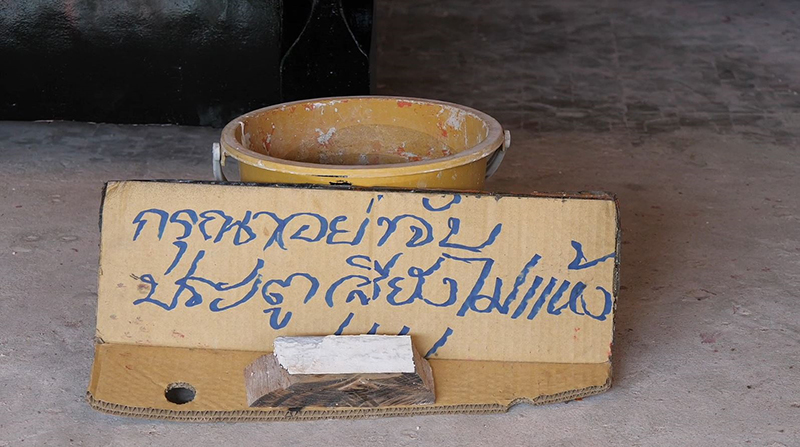 กรุณาอย่าจับ
ประตู สียังไม่แห้ง